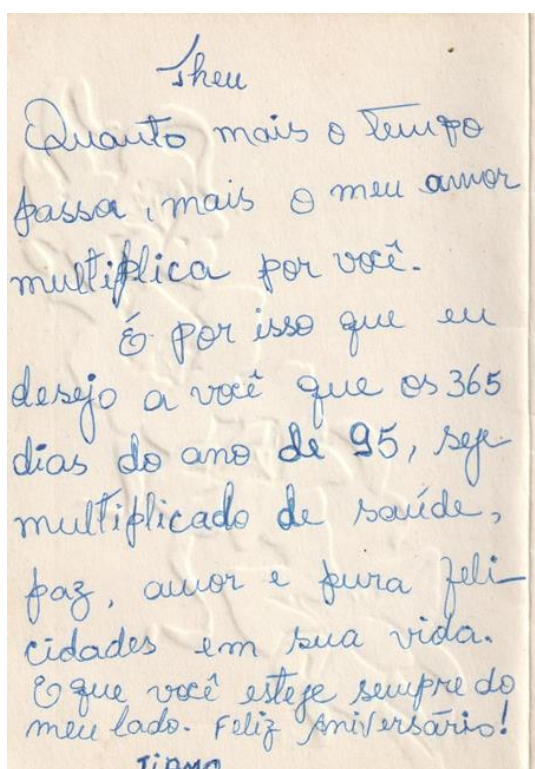 Theu
Quanto mais o tempo
passa, mais o meu amor
multiplica por você.
É por isso que eu
desejo a você que os 365
dias do ano de 95, seje
multiplicado de saúde,
paz, amor e pura feli-
cidades em sua vida.
E que você esteje sempre do
meu lado. Feliz Aniversário!
TIAMO